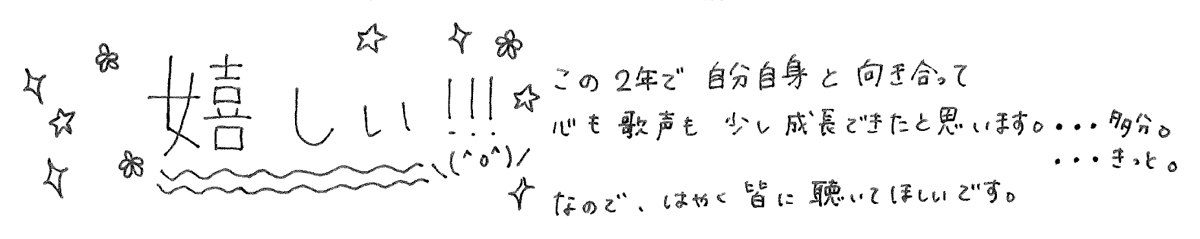 嬉しい!!!
\(^o^)/
この2年で 自分自身と向き合って
心も歌声も 少し成長できたと思います。・・・多分。
・・・きっと。
なので、はやく皆に聴いてほしいです。